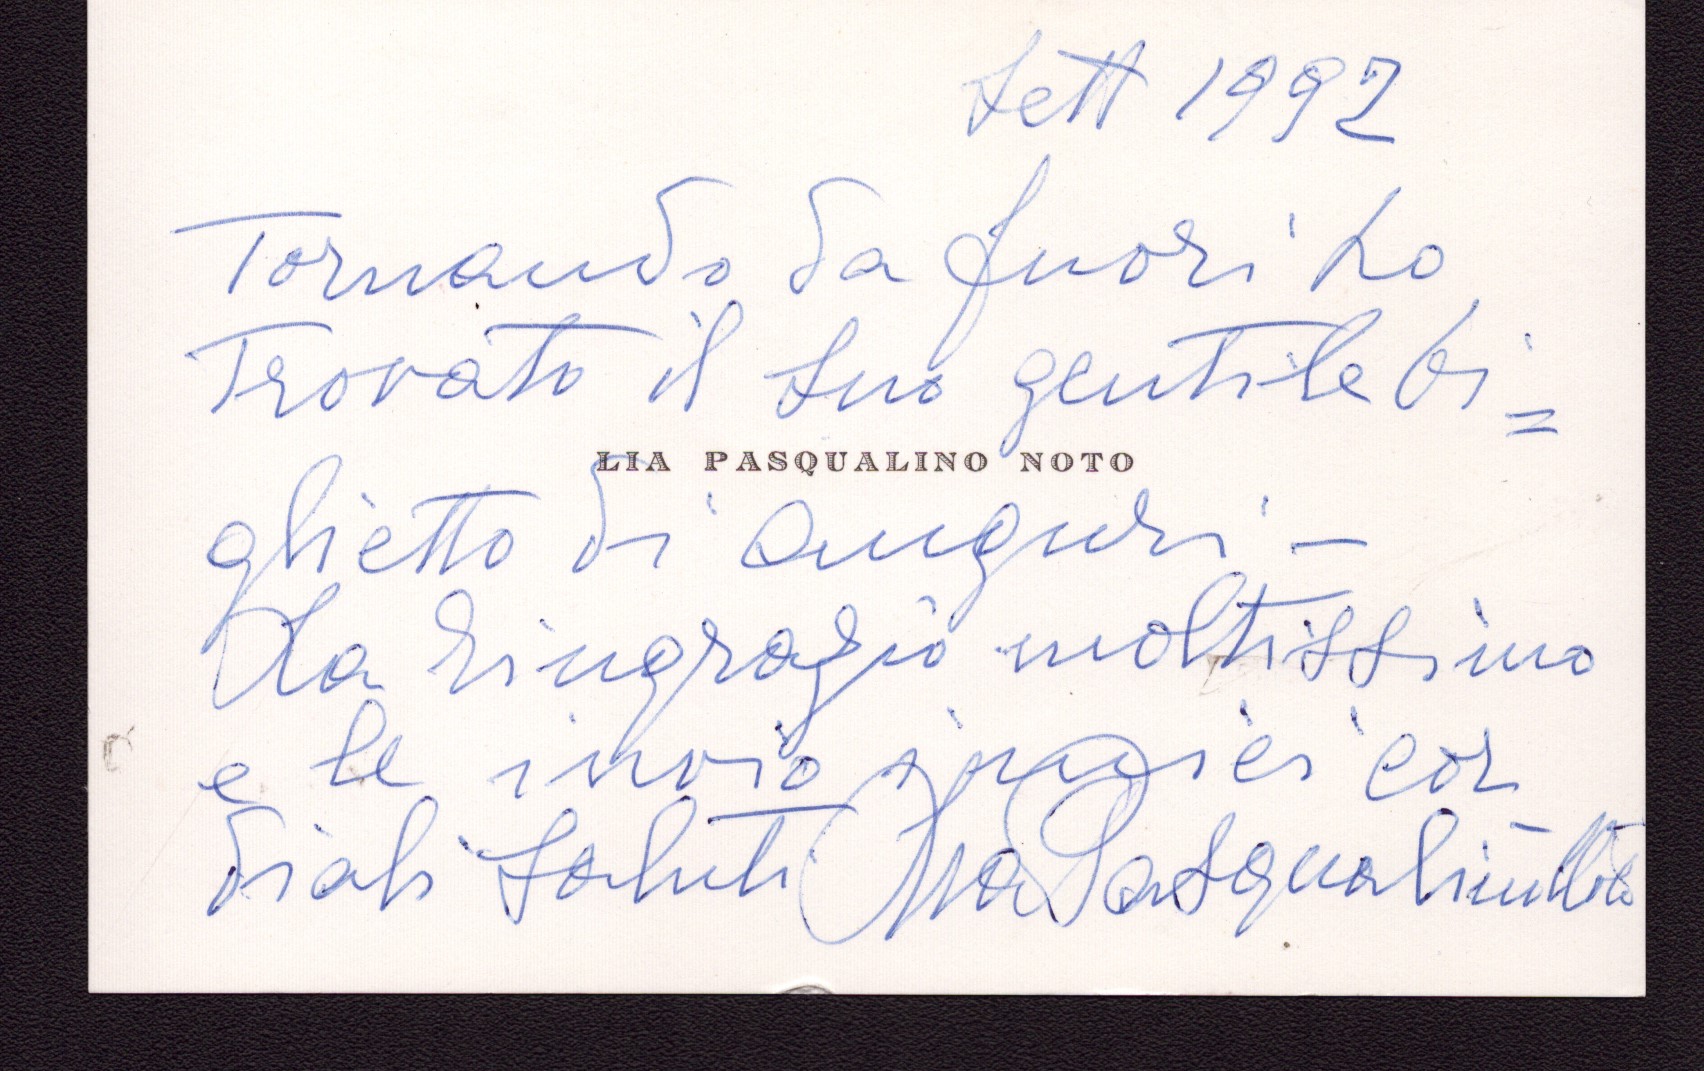 Sett 1992
Tornando da fuori ho
trovato il suo gentile bi=
LIA PASQUALINO NOTO
glietto di auguri –
La ringrazio moltissimo
e le invio i miei cor
diali saluti Lia Pasqualino Noto